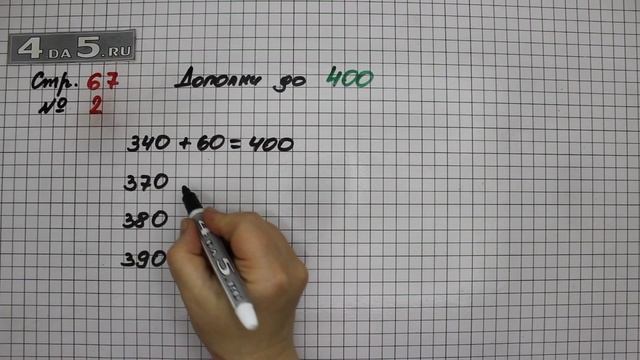 4 DA 5.RU
Стр. 67
Дополни до 400
№ 2
340 + 60 = 400
370
380
390
4 DA 5.RU